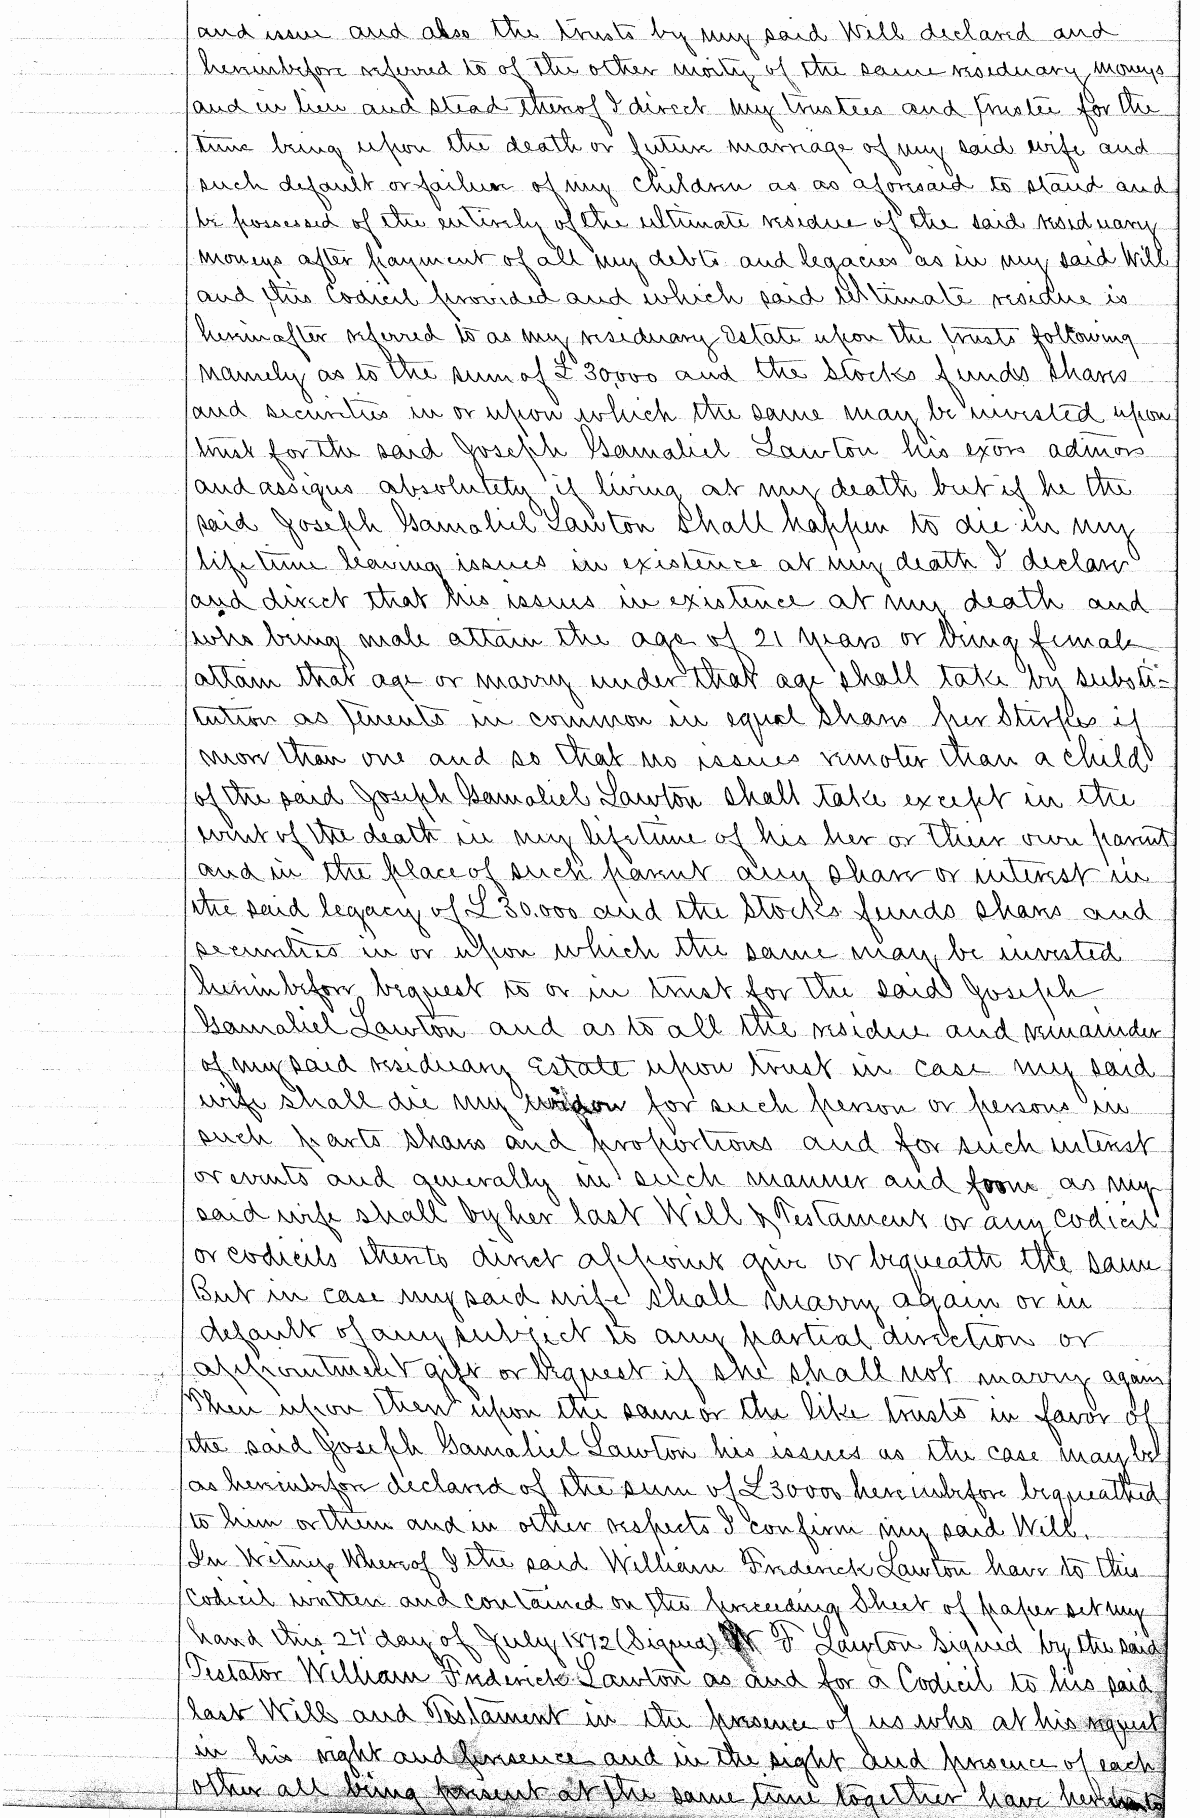 and issue and also the trusts by my said Will declared and
hereinbefore referred to of the other moity of the same residuary moneys
and in lieu and stead thereof I direct my trustees and trustee for the
time being upon the death or future marriage of my said wife and
such default or failure of my children as as aforesaid to stand and
be possessed of the entirely of the ultimate residue of the said residuary
moneys after payment of all my debts and legacies as in my said Will
and this Codicil provided and which said ultimate residue is
hereinafter referred to as my residuary Estate upon the trusts following
namely as to the sum of £30,000 and the stocks funds shares
and securities in or upon which the same may be invested upon
trust for the said Joseph Gamaliel Lawton his exors admors
and assigns absolutety if living at my death but if he the
said Joseph Gamaliel Lawton shall happen to die in my
lifetime leaving issues in existence at my death I declare
and direct that his issues in existence at my death and
who being male attain the age of 21 years or being female
attain that age or marry under that age shall take by substi-
tution as tenents in common in equal shares per Stirpes if
more than one and so that no issues remoter than a child
of the said Joseph Gamaliel Lawton shall take except in the
event of the death in my lifetime of his her or their own parent
and in the place of such parent any share or interest in
the said legacy of £30.000 and the Stocks funds shares and
securities in or upon which the same may be invested
hereinbefore bequest to or in trust for the said Joseph
Gamaliel Lawton and as to all the residue and remainder
of my said residuary Estate upon trust in case my said
wife shall die my widow for such person or persons in
such parts shares and proportions and for such interest
or events and generally in such manner and form as my
said wife shall by her last Will & Testament or any Codicil
or codicils thereto direct appoint give or bequeath the same
But in case my said wife shall marry again or in
default of any subject to any partial direction or
appointment gift or bequest if she shall not marry again
Then upon then upon the same or the like trusts in favor of
the said Joseph Gamaliel Lawton his issues as the case may be
as hereinbefore declared of the sum of £30000 hereinbefore bequeathed
to him or them and in other respects I confirm my said Will.
In Witness Whereof I the said William Frederick Lawton have to this
Codicil written and contained on the preceeding Sheet of paper set my
hand this 27 day of July 1872 (Signed) W F Lawton Signed by the said
Testator William Frederick Lawton as and for a Codicil to his said
last Will and Testament in the presence of us who at his request
in his sight and presence and in the sight and presence of each
other all being present at the same time together have hereunto